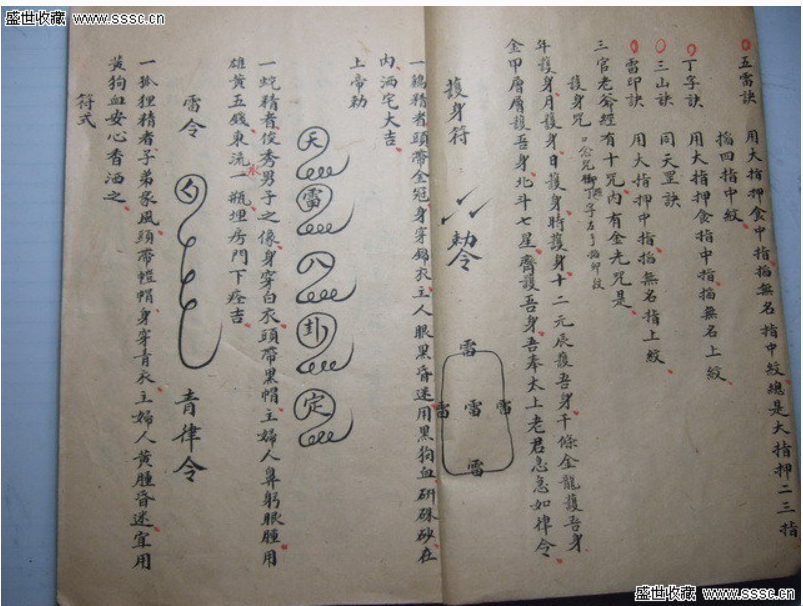 盛世收藏 www.sssc.cn
五雷訣 用大指押食中指掐無名指中紋總是大指押二三指
掐四指中紋
丁字訣 用大指押食指中指掐無名上紋
三山訣 同天罡訣
雷印訣 用大指押中指掐無名指上紋
三官老爺經有十咒內有金光咒是
護身咒
年護身月護身日護身時護身十二元辰護吾身千條金龍護吾身
金甲層層護吾身北斗七星齊護吾身吾奉太上老君急急如律令
護身符 勅令
雷
雷 雷 雷
雷
一鷄精者頭帶金冠身穿錦衣主人眼黑昏迷用黑狗血研硃砂在
內洒宅大吉
上帝勅
天雷八卦定
一蛇精者俊秀男子之像身穿白衣頭帶黑帽主婦人鼻躬眼腫用
雄黃五錢東流水一瓶埋房門下痊吉
雷令 青律令
一狐狸精者子弟家風頭帶氊帽身穿青衣主婦人黃腫昏迷宜用
黃狗血安心香洒之
符式
盛世收藏 www.sssc.cn